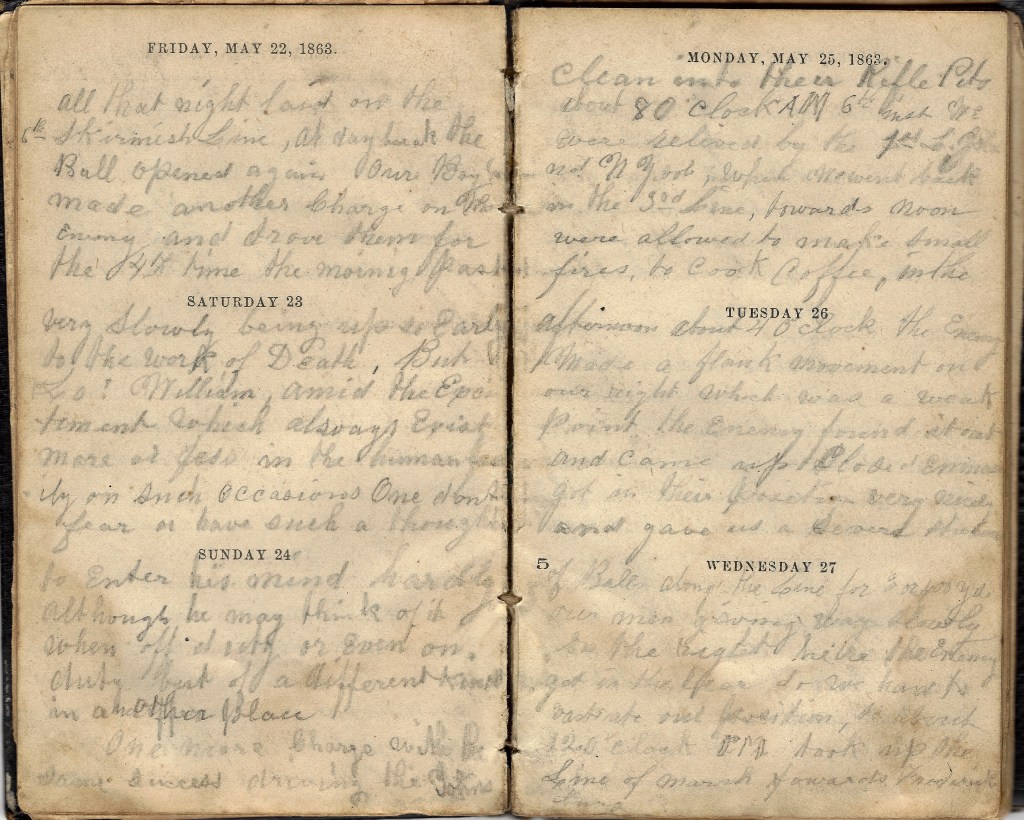 FRIDAY, MAY 22, 1863.
all that night laid on the
6th Skirmish Line, at daybreak the
Ball opened again Our Boys
made another Charge on The
Enemy and drove them for
the 4th time the mornig Past
SATURDAY 23
very Slowly being up so Early
to the work of Death, But
Lo! William, amid the Exci
tement which always Exist
more or less in the human
ily on Such occasions One dont
fear or have such a thought
SUNDAY 24
to Enter his mind hardly
although he may think of it
when off duty or Even on
duty but of a different kind
in another place
One more Charge with the
same sucess driving the Johns
MONDAY, MAY 25, 1863.
Clean into their Rifle Pits
about 8 O'Clock AM 6th inst We
were relieved by the 1st
when we went back
in the 3rd Line, towards noon
were allowed to make Small
fires, to Cook Coffee, in the
TUESDAY 26
afternoon about 4 O'clock the Enemy
Made a flank movement on
our right which was a weak
Point the Enemy found it out
and Came up
got in their position very nicely
and gave us a Severe
5 WEDNESDAY 27
of Balls along the Line for yds
our men giving way slowly
on the right here the Enemy
got in the Rear so we had to
our position, to about
12 O'Clock PM took up the
Line of march towards Frederick
burg